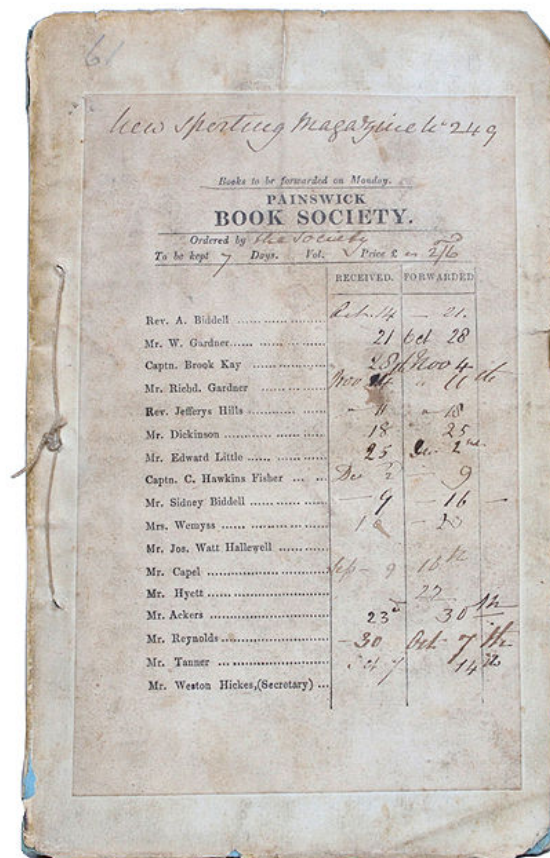 61
New Sporting Magazine No 249
Books to be forwarded on Monday.
PAINSWICK
BOOK SOCIETY.
Ordered by the Society
To be kept 7 Days. Vol. Price £ 2/6
RECEIVED. FORWARDED
Rev. A. Biddell ........................ Oct. 14 — 21.
Mr. W. Gardner........................ 21 Oct 28
Captn. Brook Kay ........................ 28 Nov 4
Mr. Richd. Gardner ........................ Nov " 11th
Rev. Jefferys Hills ........................ " 11 " 18
Mr. Dickinson ........................ 18 25
Mr. Edward Little ........................ 25 Dec 2nd
Captn. C. Hawkins Fisher ... ... Dec 2 — 9
Mr. Sidney Biddell ........................ — 9 — 16 —
Mrs. Wemyss ........................ —
Mr. Jos. Watt Hallewell ...............
Mr. Capel ........................ Sep — 9 16th
Mr. Hyett ........................
Mr. Ackers ........................ 23d 30th
Mr. Reynolds ........................ — 30 Oct 7th
Mr. Tanner ........................ Oct 7 14th
Mr. Weston Hickes,(Secretary) ...